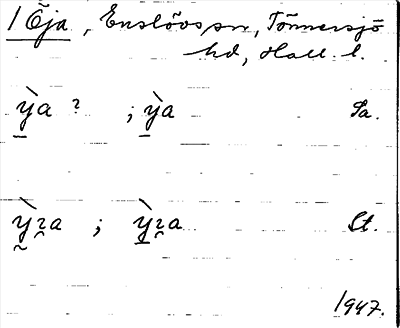 1 Öja, Enslövs sn, Tönnersjö
hd, Hall. l.
ỳa ? ; ỳa Sa.
ỳɿa ; ỳɿa St.
1947.